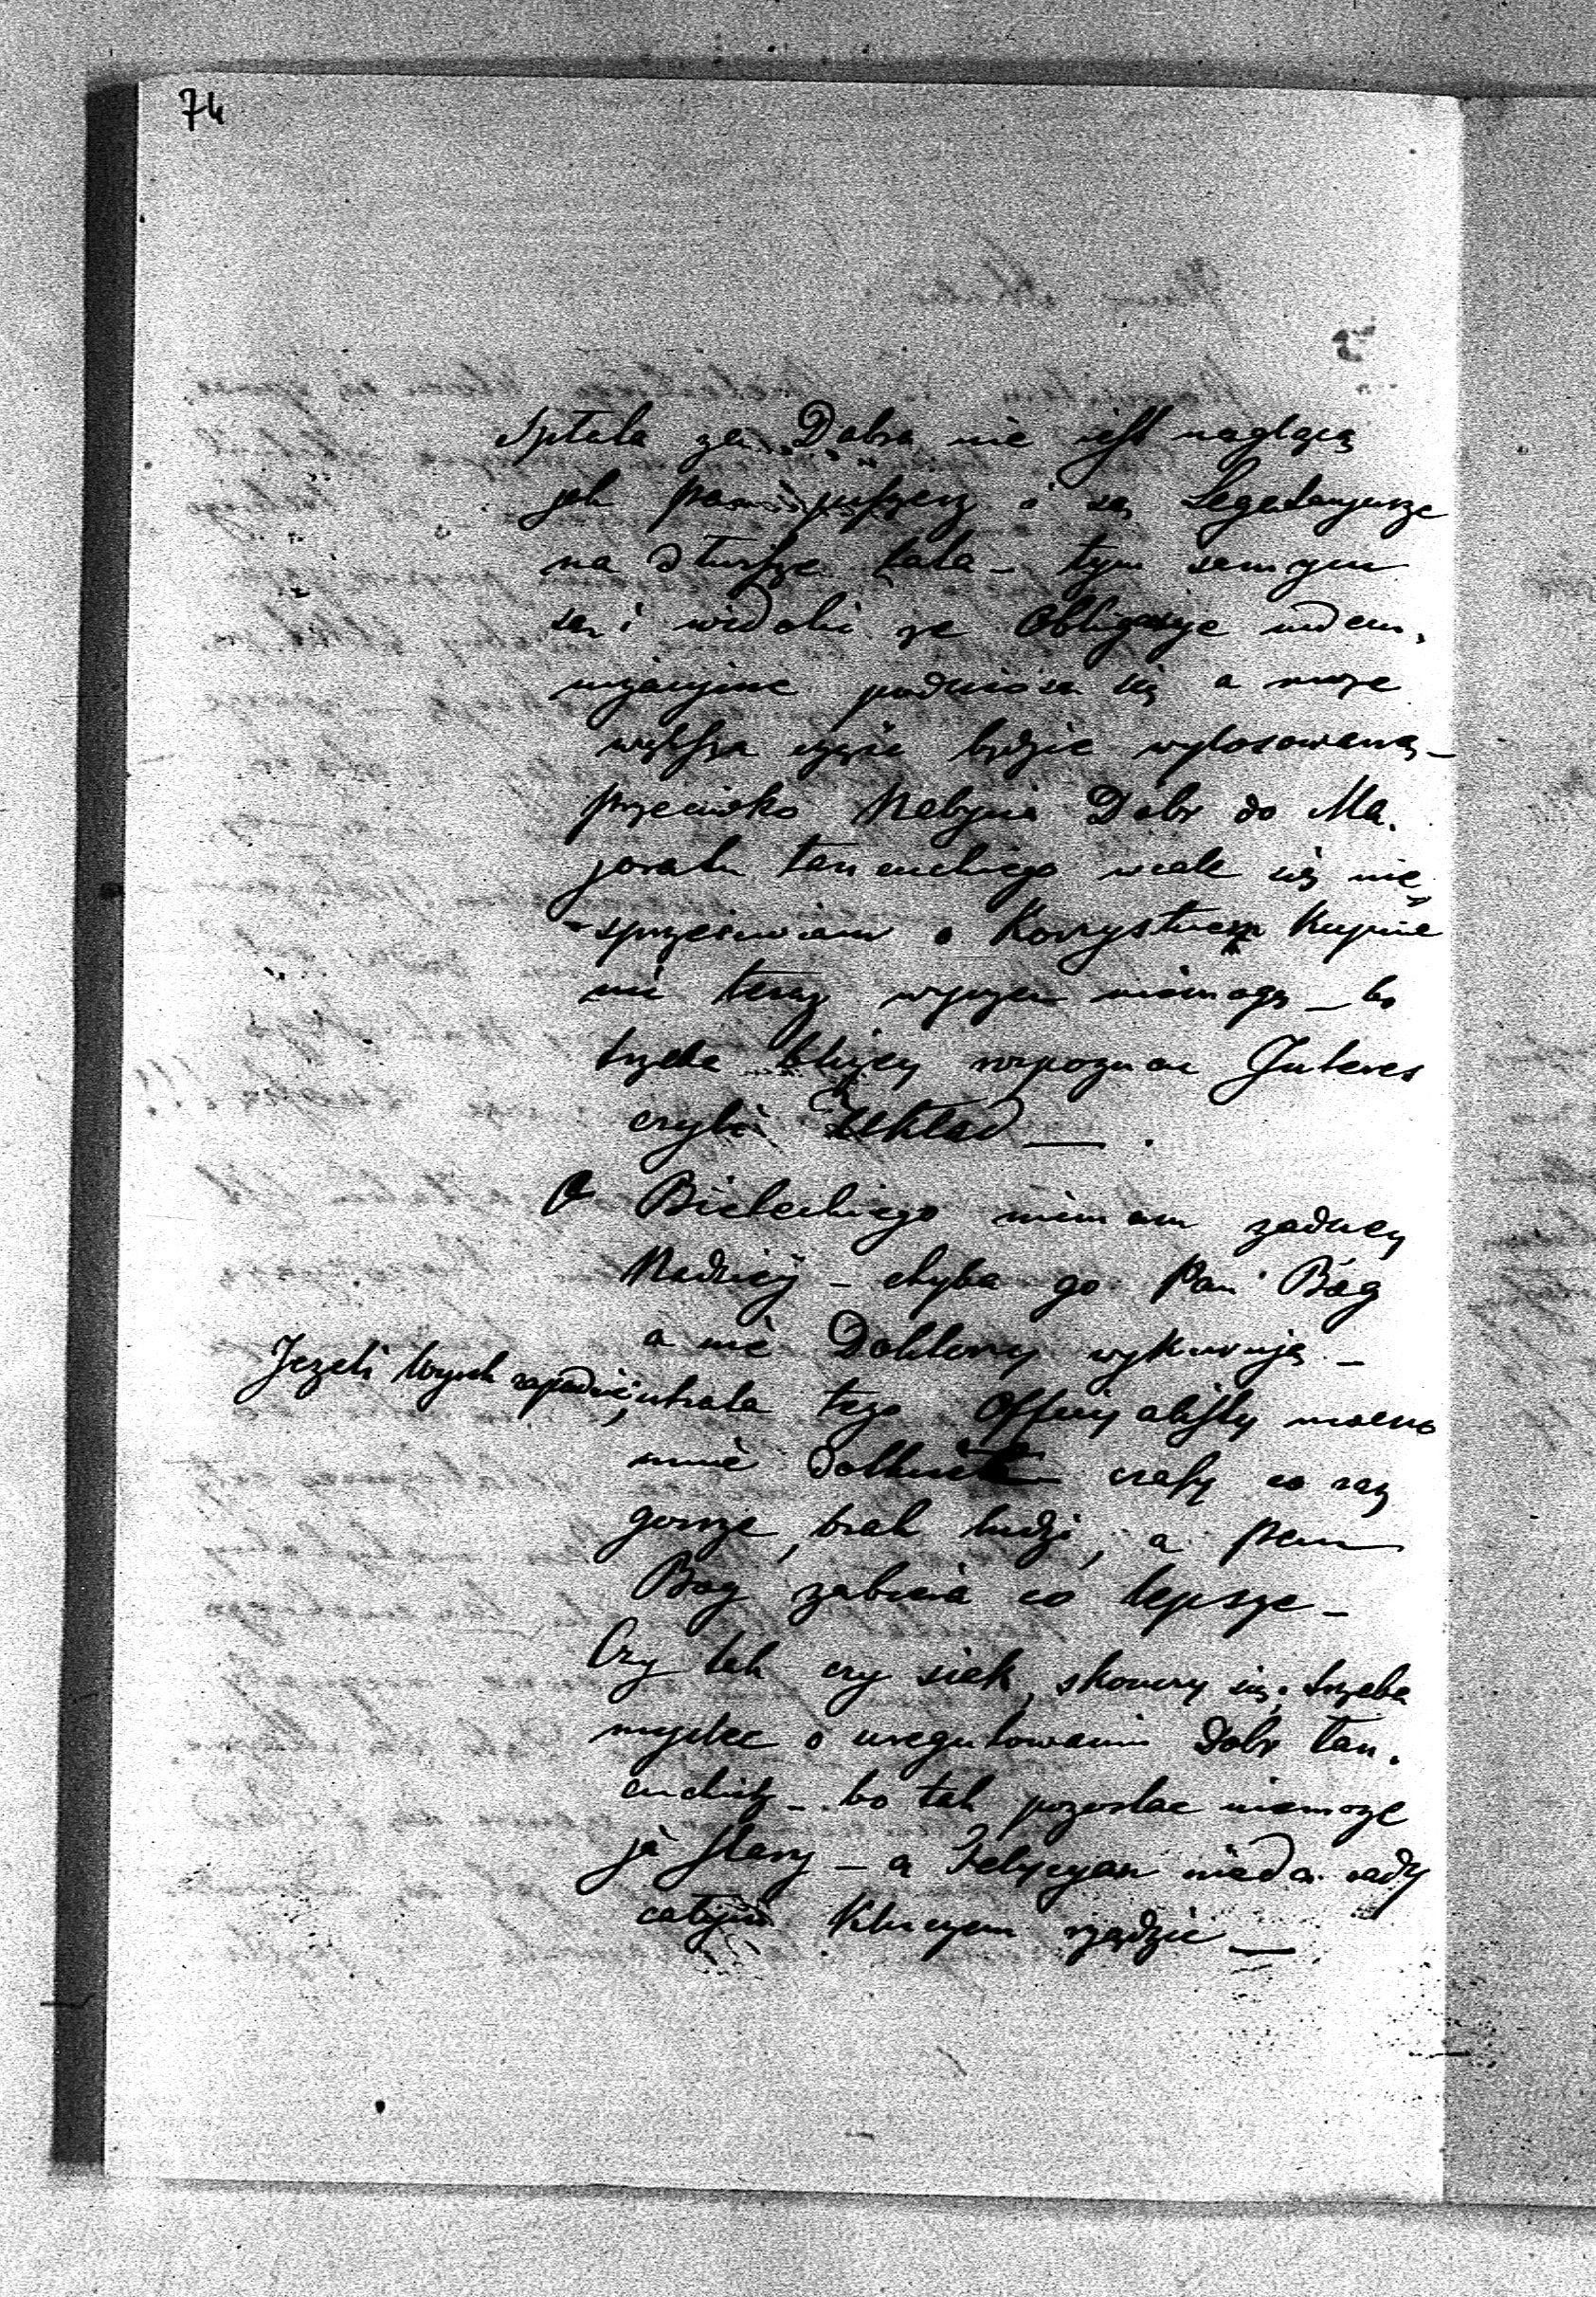 74
Spłata za Dobra nie jest naglącą
jak Pan piszesz i są Legataryusze
na dłuższe lata – tym samym
są i widoki że Obligacye indem,
nizacyjne podniosą się a może
większa część będzie wylosowaną –
przeciwko Nabycia Dobr do Ma.
joratu Łancuckiego wcale się nie
sprzeciwiam o Korzystnem Kupnie
nic teraz wyrzec niemogę – bo
trzeba bliżey rozpoznac Interes
czyli Układ — .
O Bieleckiego niemam zadney
Nadziej – chyba go Pan Bóg
a nie Doktory wykurują –
Jeżeli tyzych zapadnie, utrata tego Officyalisty mocno
mnie dotknie czasy co raz
gorsze, brak ludzi, a Pan
Bog zabiera co lepsze –
Czy tak czy siak, skonczy się; trzeba
myslec o uregulowaniu Dobr Łan.
cuckich – bo tak pozostac niemoże
ja stary – a Felicyan nieda rady
całym Kluczem rządzic —